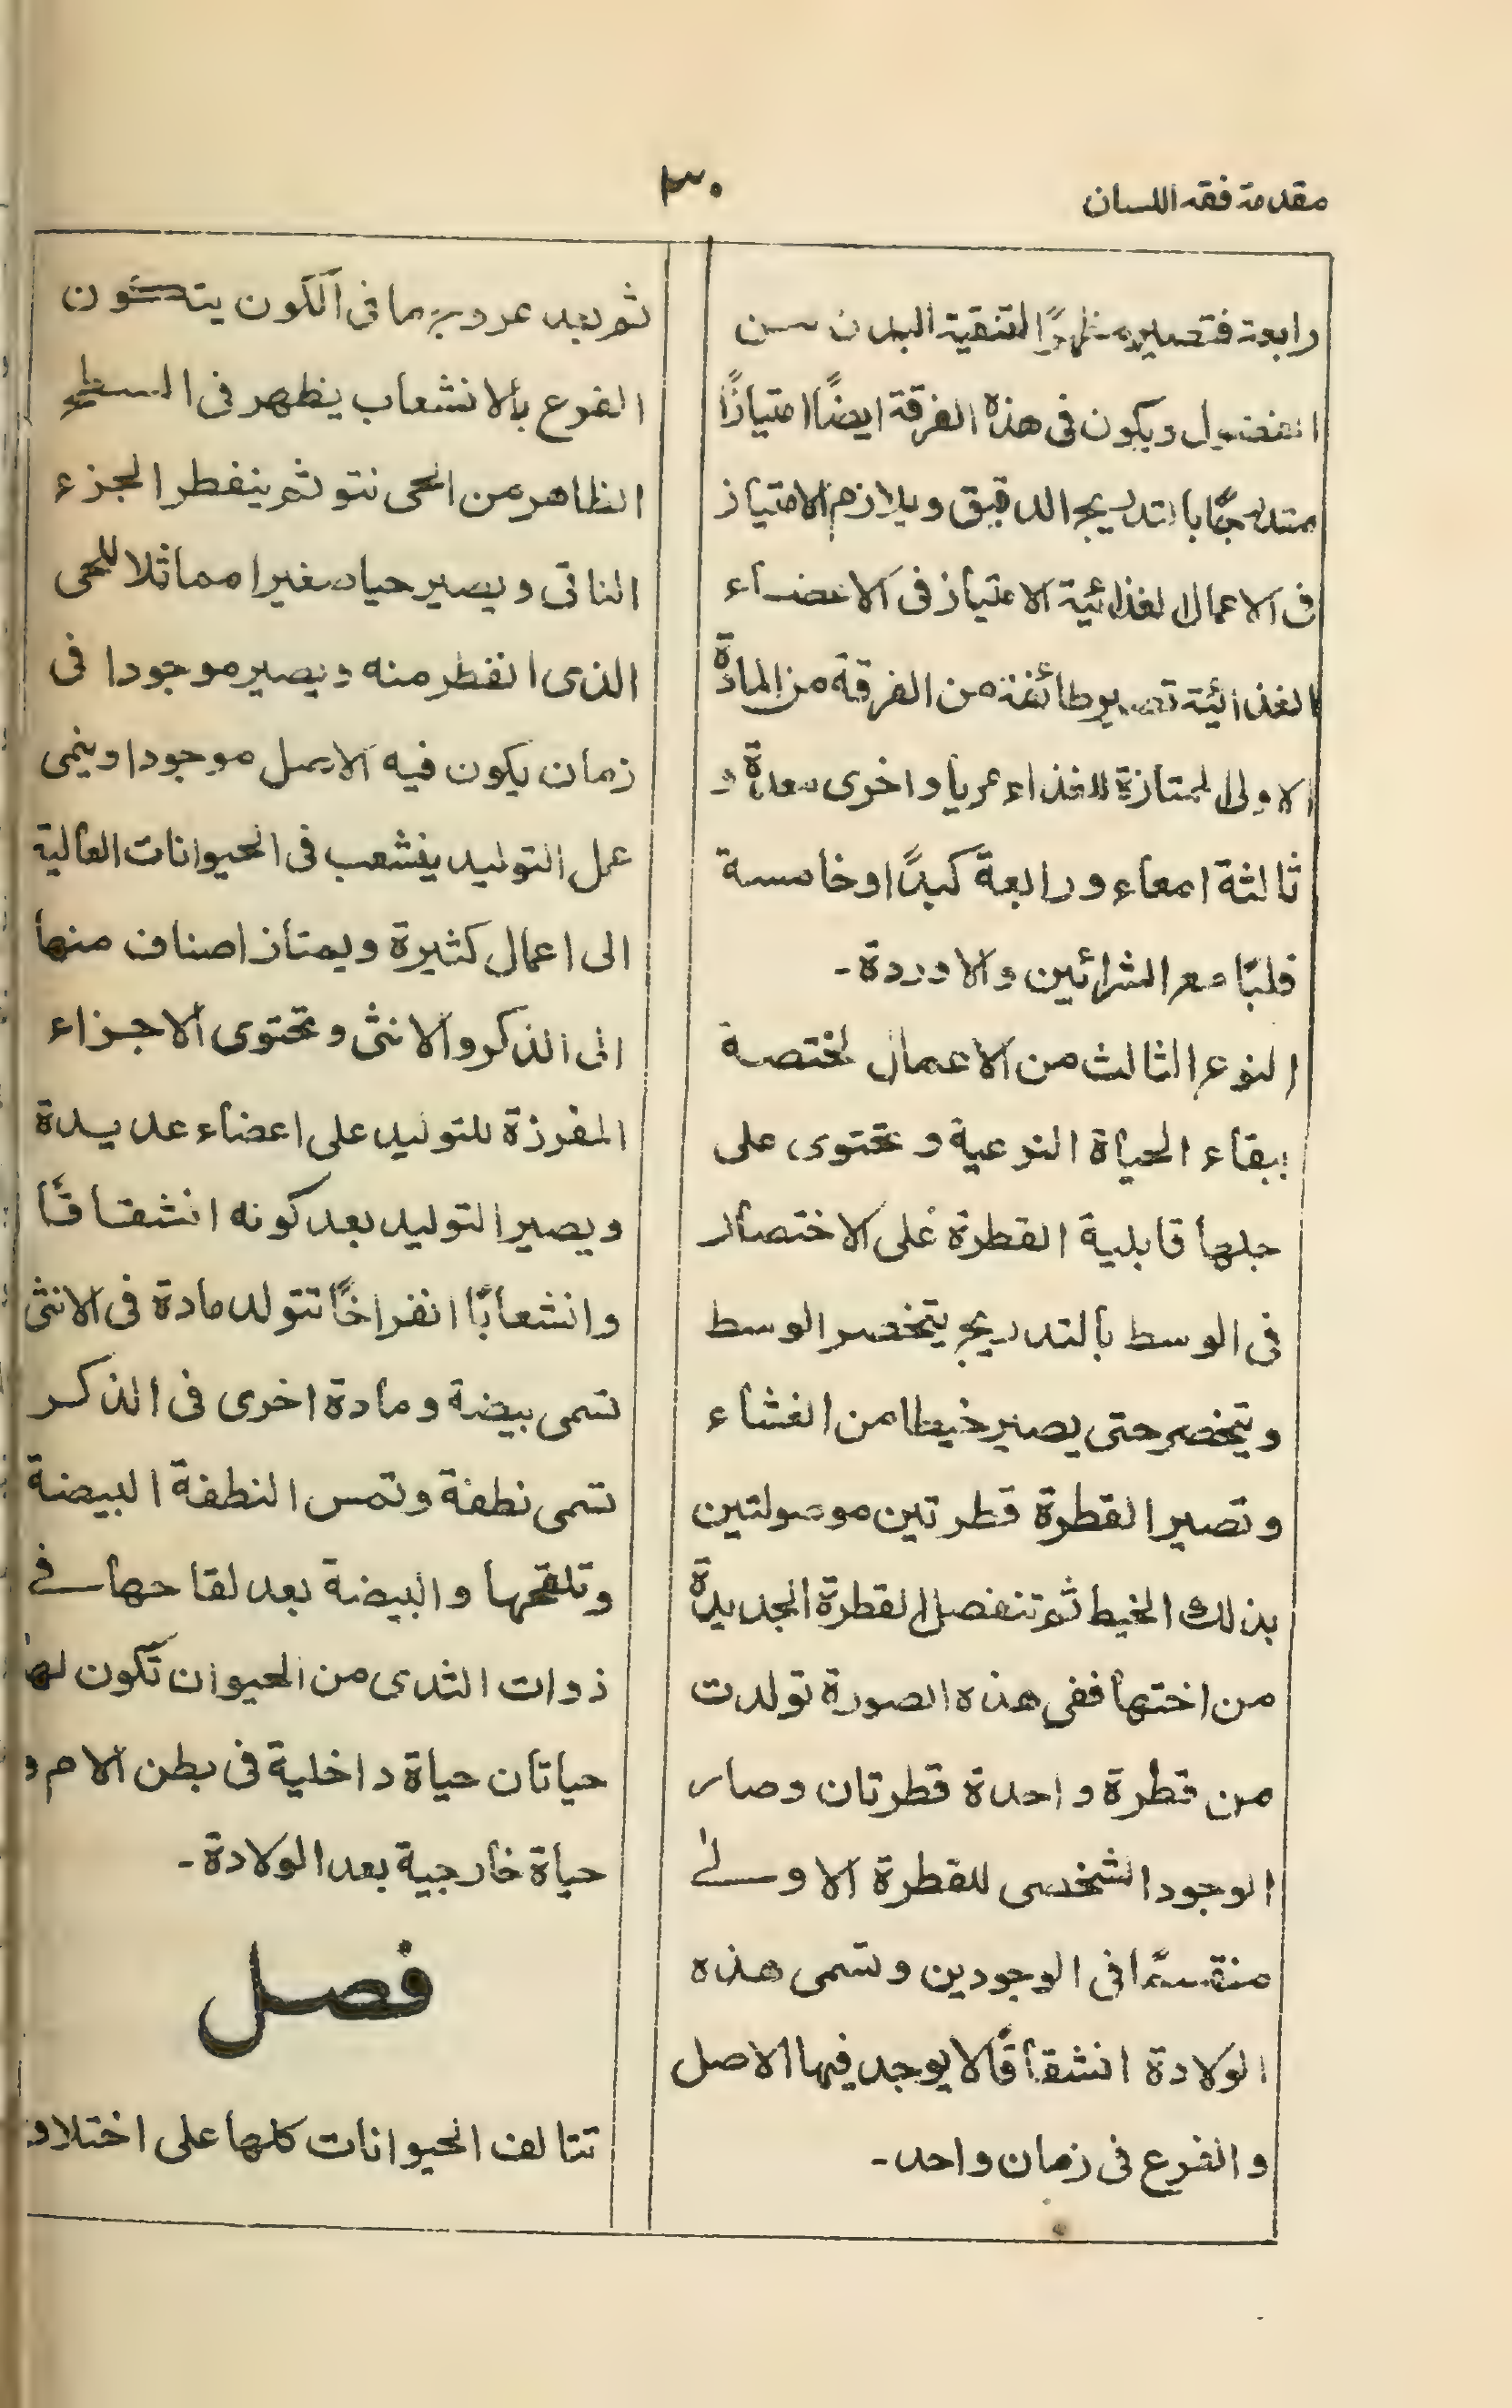 مقدمة فقه اللسان
٣٠
رابعة فتصير مظهرًا لتنقية البدن من
الفضول ويكون فى هذه الفرقة ايضًا امتيازًا
متدرجًا بالتدريج الدقيق ويلازم الامتياز
فى الاعمال الغذائية الامتياز فى الاعضاء
الغذائية تصير طائفة من الفرقة من المادة
الاولى الممتازة للغذاء مريأ واخرى معدة و
ثالثة امعاء ورابعة كبدًا وخامسة
قلبًا مع الشرائين والاوردة۔
النوع الثالث من الاعمال لمختصة
ببقاء الحياة النوعية وتحتوى على
جلها قابلية القطرة على الاختصار
فى الوسط بالتدريج يتخصر الوسط
ويتخصر حتى يصير خيطا من الغشاء
وتصير القطرة قطرتين موصولتين
بذلك الخيط ثم تنفصل القطرة الجديدة
من اختها ففى هذه الصورة تولدت
من قطرة واحدة قطرتان وصار
الوجود الشخصى للقطرة الاولى
منقسمًا فى الوجودين وتسمى هذه
الولادة انشقاقًا لا يوجد فيها الاصل
والفرع فى زمان واحد۔
ثم بعد عروج ما فى الكون يتكون
الفرع بالانشعاب يظهر فى السطح
الظاهر من الحى نتو ثم ينفطر الجزء
الناتى ويصير حيا صغيرا مماثلا للحى
الذى انفطر منه ويصير موجودا فى
زمان يكون فيه الاصل موجودا وينمى
عمل التوليد ينشعب فى الحيوانات العالية
الى اعمال كثيرة ويمتاز اصناف منها
الى الذكر والانثى وتحتوى الاجزاء
المفرزة للتوليد على اعضاء عديدة
ويصير التوليد بعد كونه انشقاقًا
وانشعابًا انفراخًا تتولد مادة فى الانثى
تسمى بيضة ومادة اخرى فى الذكر
تسمى نطفة وتمس النطفة البيضة
وتلقحها والبيضة بعد لقاحها فى
ذوات الثدى من الحيوان تكون لها
حياتان حياة داخلية فى بطن الام و
حياة خارجية بعد الولادة۔
فصل
تتالف الحيوانات كلها على اختلاف